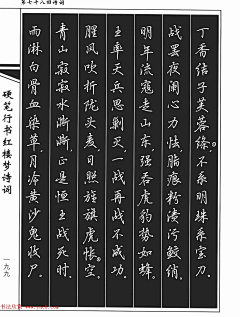 第七十八回诗词
丁香结子芙蓉绦。不系明珠系宝刀。
战罢夜阑心力怯。脂痕粉渍污鲛绡。
明年流寇走山东。强吞虎豹势如蜂。
王率天兵思剿灭。一战再战不成功。
腥风吹折陇头麦。日照旌旗虎帐空。
青山寂寂水澌澌。正是恒王战死时。
雨淋白骨血染草。月冷黄沙鬼守尸。
硬笔行书红楼梦诗词
一九九